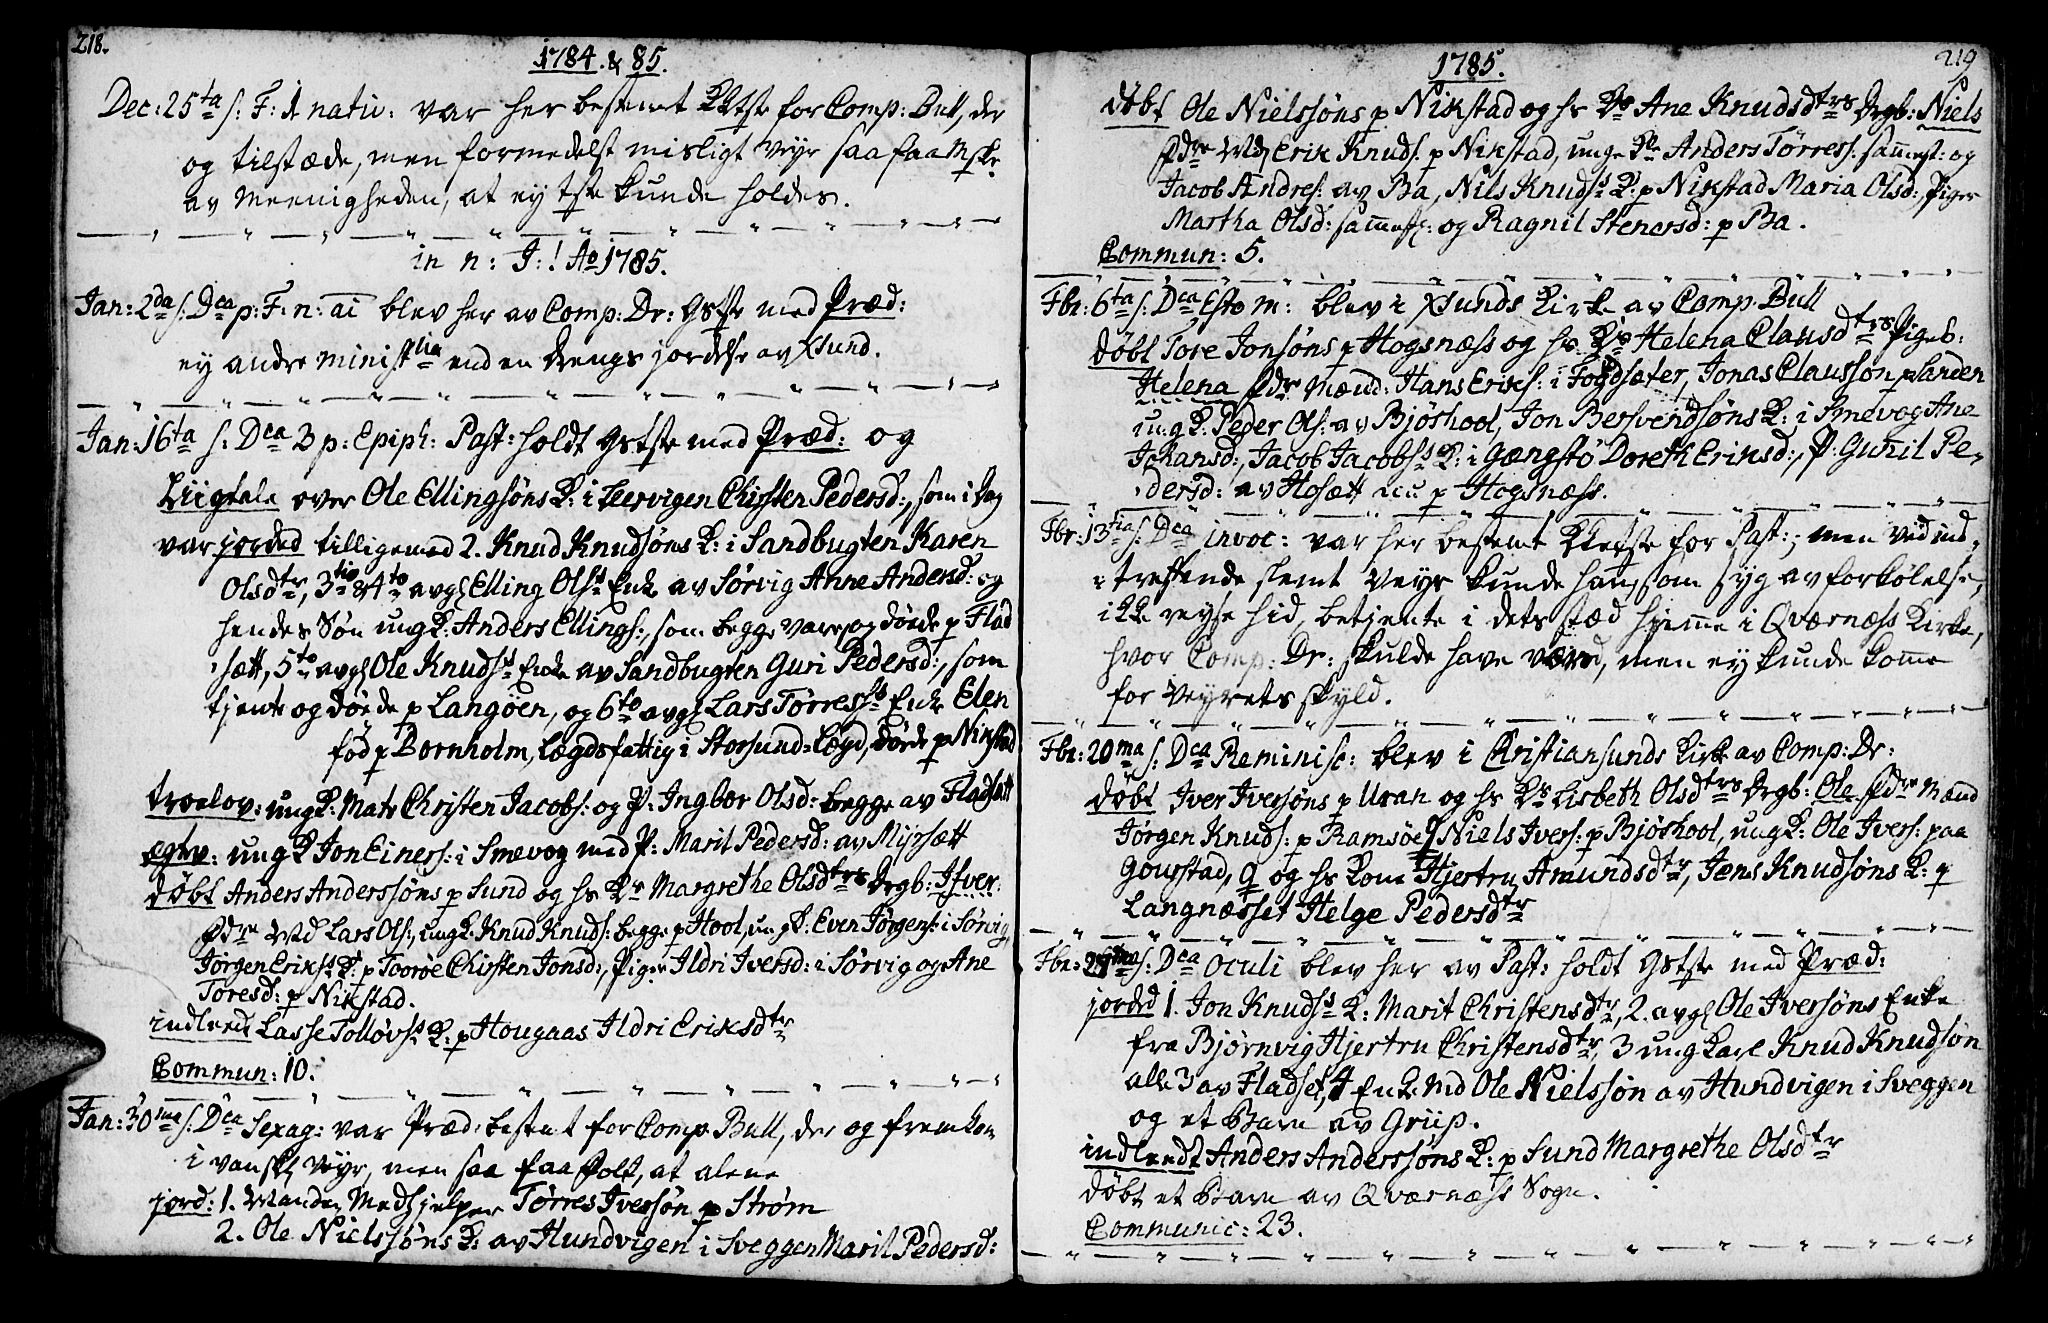 218.
1784. & 85.
Dec: 25ta s: F: 1 nativ: var her bestemt Kktste for Comp: Bull, der
og tilstæde, men formedelst misligt Veyr saa faa Msker
av Meenigheden, at ey tste kunde holdes.
in n: J:! Ao 1785.
Jan: 2da s: Dca p: F: n: ai blev her av Comp: Dr: gstste med Præd:
ey andre minist:lia end en drengs jordelse av Xsund.
Jan: 16ta s: Dca 3 p: Epiph: Past: holdt gstste med Præd: og
Liigtale over Ole Ellingsøns K: i Leervigen Chirsten Pedersd:, som i dag
var jorded tilligemed 2. Knud Knudsøns K: i Sandbugten Karen
Olsdtr, 3tio & 4to avgl Elling Olss Enke av Sørvig Anne Andersd: og
hendes Søn ung K: Anders Ellings:, som begge vare og døede p Flad
sætt, 5to avgl Ole Knuds: Enke av Sandbugten Guri Pedersd:, som
tjente og døede p Langøen, og 6to avgl Lars Tørress: Enke Elen
fød p Bornholm, Lægdsfattig i Storsund-Lægd, døde p Nikstad
troelov: ung K: Mats Christen Jacobs: og P: Ingbor Olsd: begge av Fladsætt
egtev: ung K Jon Einers: i Smevog med P: Marit Pedersd: av Myrsætt
døbt Anders Anderssøns p Sund og hs Ks Margrethe Olsdtrs Drgb: Ifver.
fdre Md Lars Ols:, ung K: Knud Knuds: begge p Hool, ung K: Even Jørgens: i Sørvig,
Jørgen Erikss K: p Toorøe Chirsten Jonsd:, Piger Ildri Iversd: i Sørvig og Ane
Toresd: p Nikstad.
indleedt Lasse Tolløvs: K: p Hougaas Ildri Eriksdtr
Commun: 10.
Jan: 30ma s: Dca Sexag: var Præd: bestemt for Comp: Bull, der og fremkom
i vanskl Veyr, men saa faa Folk, at alene
jord: 1. Manden Medhjelper Tørres Iversøn p Strøm
2. Ole Nielssøns K: av Hundvigen i Sveggen Marit Pedersd:
219
1785.
døbt Ole Nielssøns p Nikstad og hs Ks Ane Knudsdtrs Drgb: Niels
fdre Md Erik Knuds: p Nikstad, unge Ke Anders Tørres: sammest: og
Jacob Andres: av Ba, Nils Knudss K: p Nikstad Maria Olsd:, Piger
Martha Olsd: sammest: og Ragnil Stenersd: p Ba.
Commun: 5.
Fbr: 6ta s: Dca Esto m: blev i Xsunds Kirke av Comp: Bull
døbt Tore Jonsøns p Hogsnæss og hs Ks Helena Clausdtrs Pigeb:
Helena fdre Mænd: Hans Eriks: i Fogdsæter, Jonas Claussøn p Sanden
ung K: Peder Ols: av Bjøshool, Jon Bersvendsøns K: i Smevog Ane
Johansd:, Jacob Jacobss K: i Gængstø Doreth Eriksd:, P: Gunil Pe-
dersd: av Hosætt nu p Hogsnæss.
Fbr: 13tia s: Dca invoc: var her bestemt Kktste for Past:; men ved ind-
treffende slemt Veyr kunde han, som syg av forkølelse,
ikke reyse hid, betjente i dets stæd hjemme i Qværnæss Kirke,
hvor Comp: Dr: skulde have været, men ey kunde komme
for Veyrets skyld.
Fbr: 20ma s: Dca Reminisc: blev i Christiansunds Kirke av Comp: Dr:
døbt Iver Iversøns p Uran og hs Ks Lisbeth Olsdtrs Drgb: Ole fdre Mænd
Jørgen Knuds: p Ramsøe, Niels Ivers: p Bjøshool, ung K: Ole Ivers: paa
Gourstad, og hs Kone Hjertru Amundsdtr, Jens Knudsøns K: p
Langnæsset Helge Pedersdtr
Fbr: 27ma s: Dca Oculi blev her av Past: holdt gstste med Præd:
jorded 1. Jon Knudss K: Marit Christensdtr, 2. avgl Ole Iversøns Enke
fra Bjørnvig Hjertru Christensdtr, 3 ung Karl Knud Knudsøn
alle 3 av Fladset, 4 Enkemd Ole Nielssøn av Hundvigen i Sveggen
og et Barn av Griip.
indleedt Anders Anderssøns K: p Sund Margrethe Olsdtr
døbt et Barn av Qværnæss Sogn.
Communic: 23.